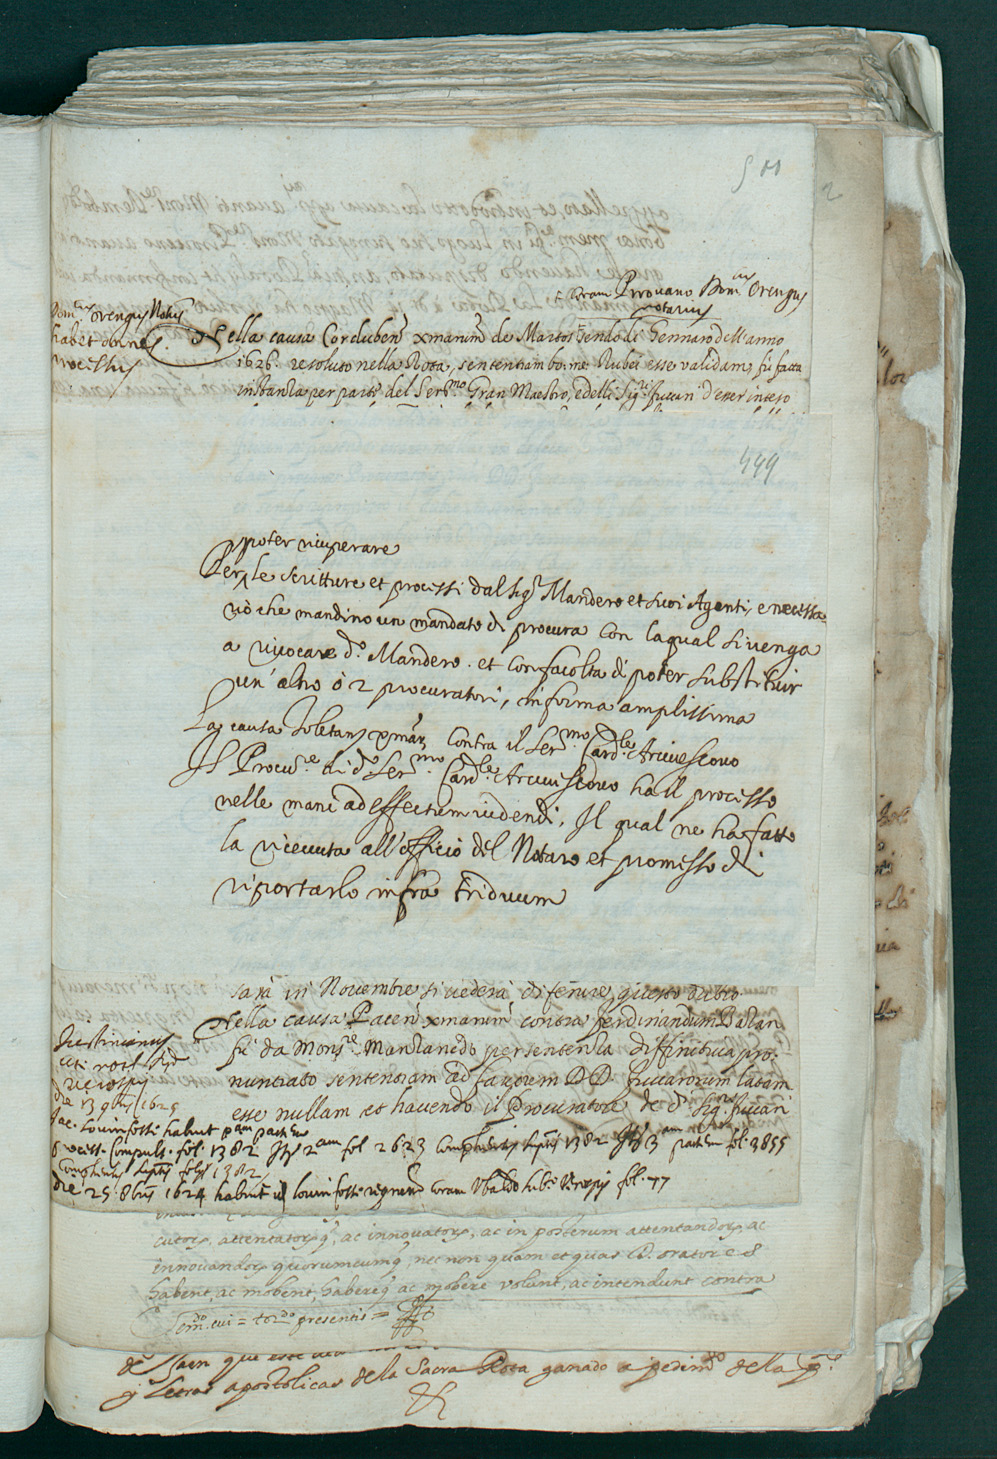 500
2
Coram Pirovano Dom.cus Orengus
notarius
Dom.cus Orengus Notus
habet omnes
processus
Nella causa Corduben xmarum de Martos sendo li Gennaro dell'anno
1626. resoluto nella Rota, sententiam bo: me: Rubei esse validam, fù fatta
instanza per parte del Ser.mo Gran Maestro, e delli Sig.ri fuccari d'esser inteso
499
poter ricuperare
Per le scritture et processi dal sig.r Mandero et suoi Agenti, e necessa-
rio che mandino un mandato di procura con la qual si venga
a rivocare d.o Mandero. et con facolta di poter substituir
un'altro ò 2 procuratori, in forma amplissima
La causa Toletan xmar, contra il Ser.mo Card.le Arcivescovo
Il Procu.re di d.o Ser.mo Card.le Arcivescovo ha il processo
nelle mani ad effectum videndi, Il qual ne ha fatto
la ricevuta all'officio del Notaro et promesso di
riportarlo infra triduum
sarà in Novembre si vederà difenire questo dubio
Nella causa Pacen xmarum contra ferdinandum Bazan
fù da Mons.re Manzanedo per sentenza diffinitiva pro:
nunciato sententiam ad favorem DD. fuccarorum latam
esse nullam et havendo il Procuratore de d.i Sig.ri fuccari
Justinianus
die 13 1625
habuit p.am partem
Compuls. fol. 1382 2.am fol 2623 1382 3.am partem fol. 3855
1382
die 25. 8bris 1624 habuit coram Ubaldo fol. 77
cutors, attentators q, ac innovators, ac in posterum attentandors, ac
innovandors quorumcumq, nec non quam et quas D. orator e s
habent, ac mobent, habereq, ac mobere volunt, ac intendunt contra
presentis =
de Jaen que este
y Letras apostolicas de la Sacra Rota ganado a pedim.to de la p.te